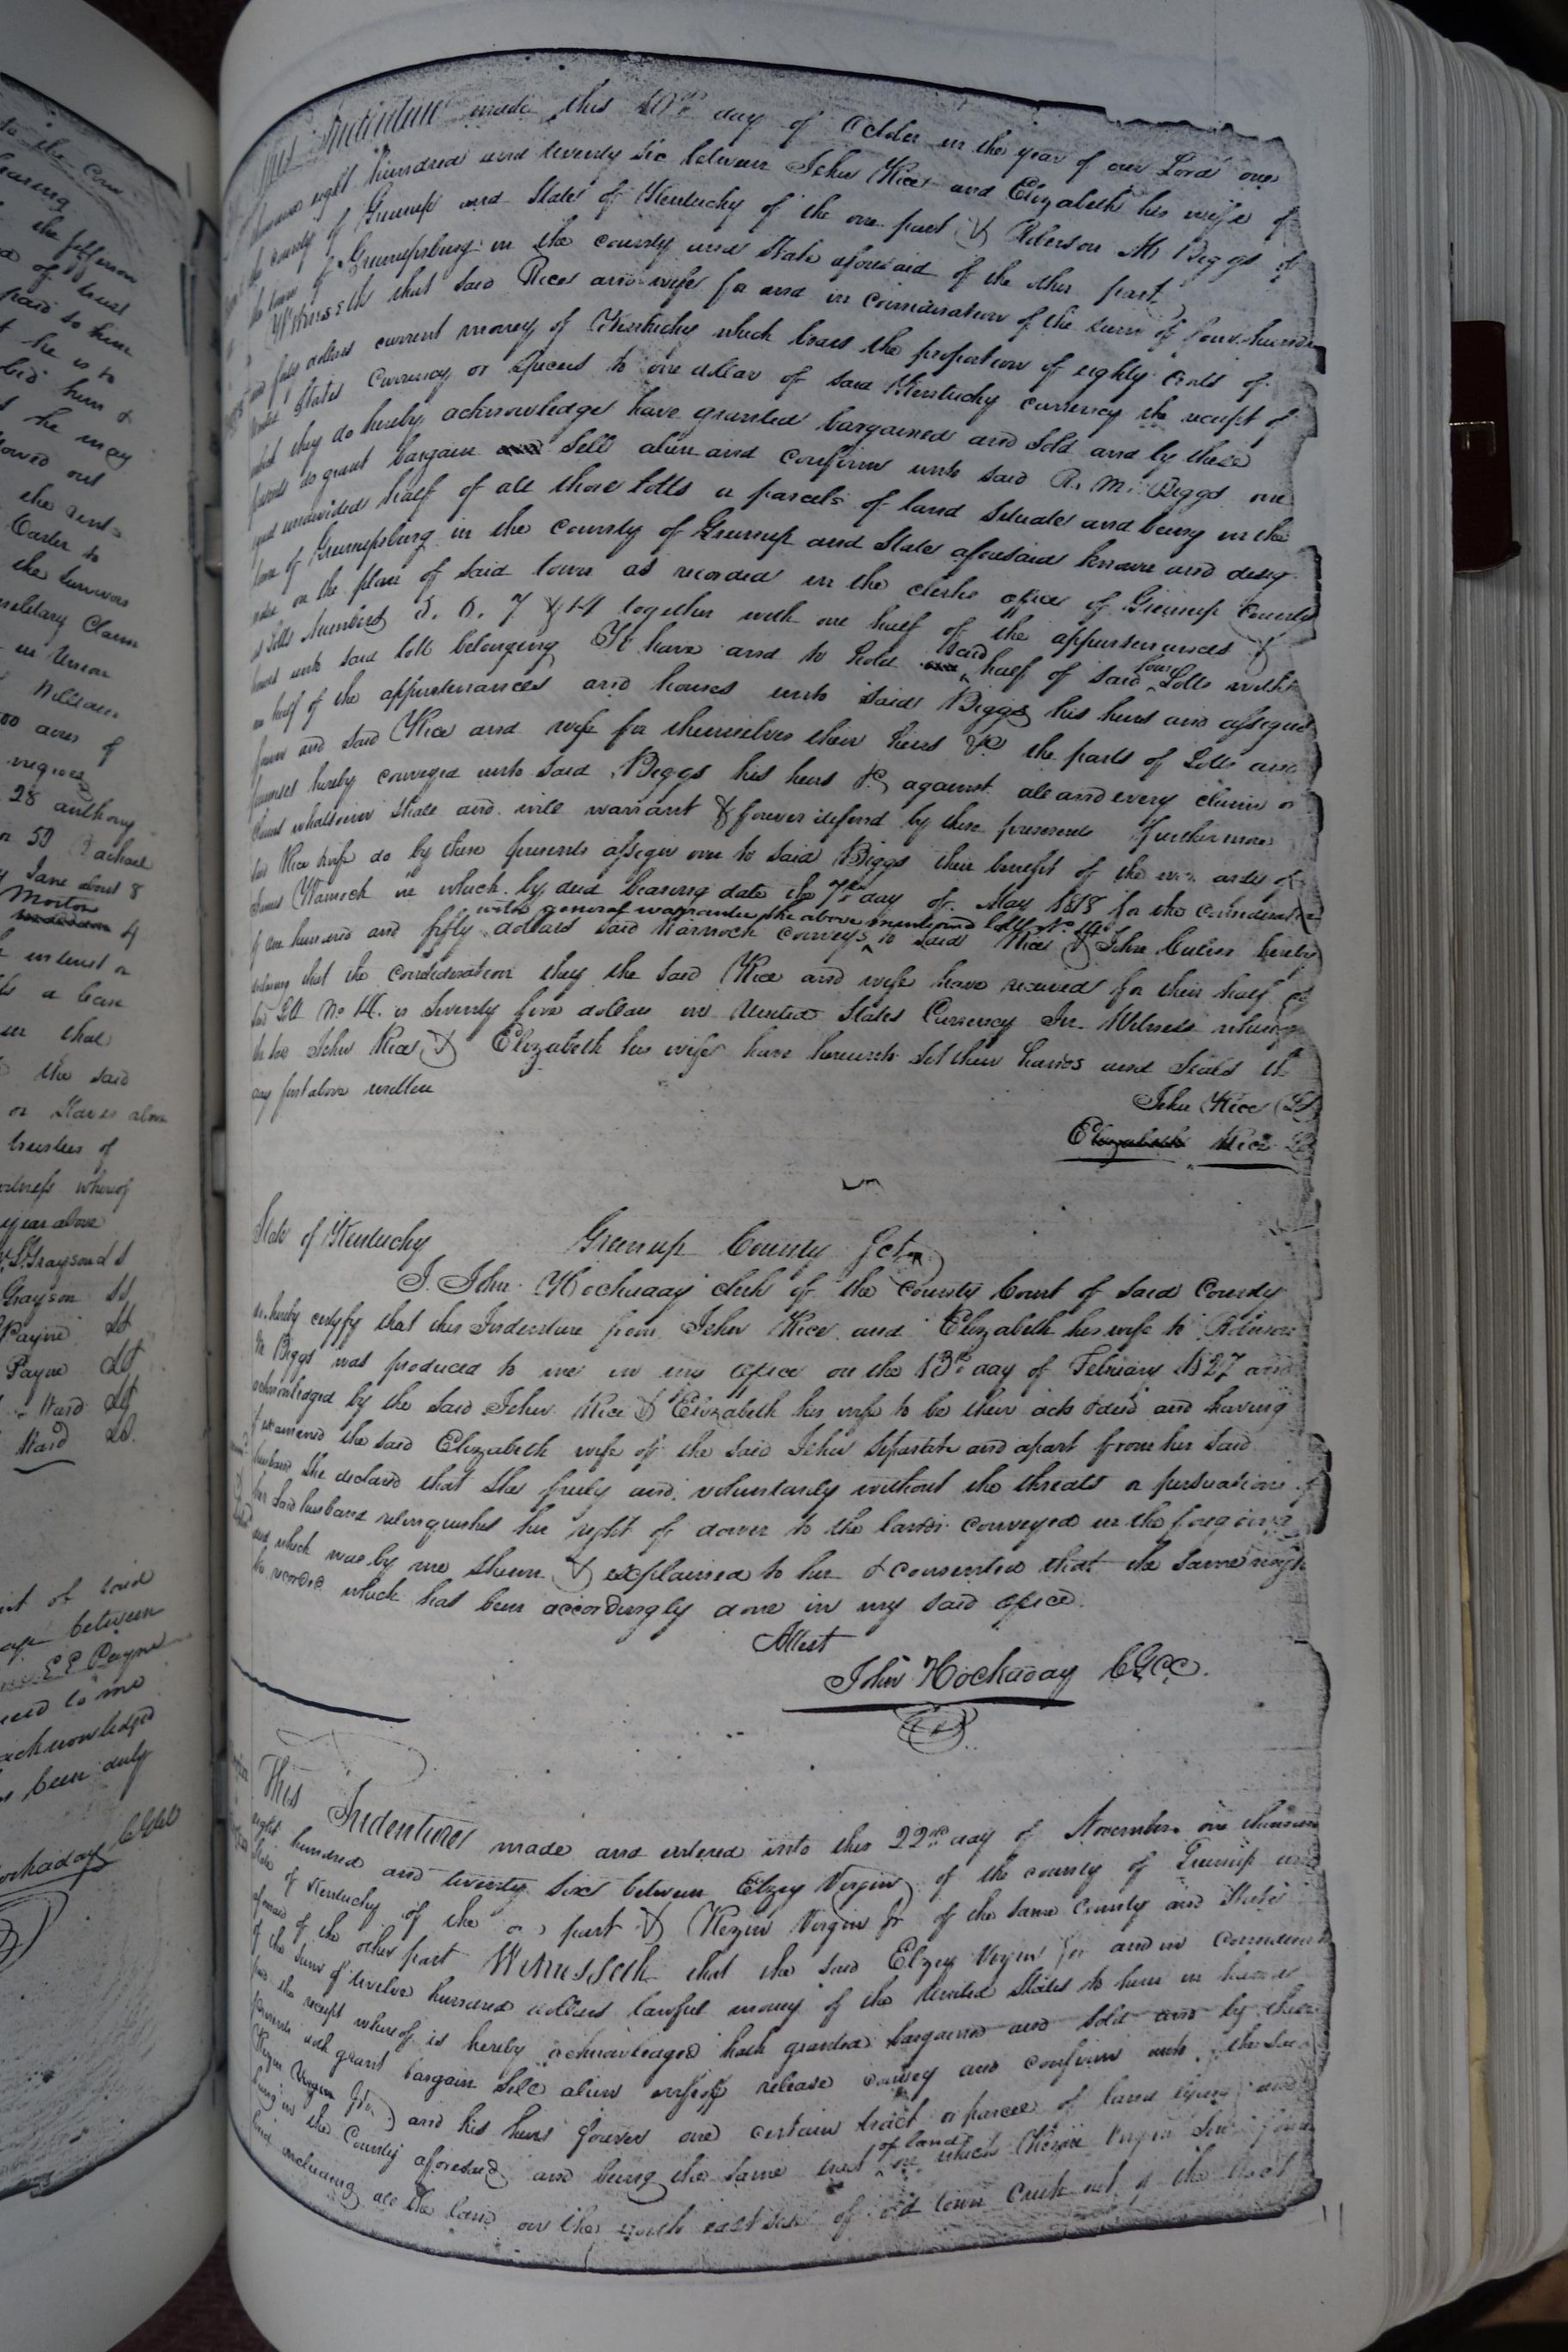 to the Cou
hearing
the jefferson
d of trust
paid to him
t he is to
him &
t he may
lowed out
the rent
Carter to
the survivor
Claim
in Union
William
00 acres of
negroes
28 anthony
n 53 Rachael
y Jane about 8
Morton
4
interest or
a lean
that
the said
or Slaves above
trustees of
witness whereof
year above
W. S. Grayson L S
Grayson LS
Payne LS
Payne LS
Ward LS
Ward LS
of said
between
E E Payne
to me
acknowledged
been duly
Hockaday
This Indenture made this 10th day of October in the year of our Lord one
thousand eight hundred and twenty six between John Rice and Elizabeth his wife of
the county of Greenup and State of Kentucky of the one part & Roberson M Biggs of
the town of Greenupsburg in the county and State aforesaid of the other part
Witnesseth that said Rice and wife for and in consideration of the sum of four hundred
and fifty dollars current money of Kentucky which bears the proportion of eighty cents of
United States Currency or Specie to one dollar of said Kentucky currency the receipt of
which they do hereby acknowledge have granted bargained and Sold and by these
presents do grant bargain and Sell alien and confirm unto said R. M. Biggs one
equal undivided half of all those lotts or parcels of land Situate and being in the
town of Greenupsburg in the county of Greenup and State aforesaid known and desig
nated on the plan of said town as recorded in the clerks office of Greenup County
as lotts Numbers 5. 6. 7 & 14 together with one half of the appurtenances &
houses unto said lotts belonging To have and to hold said half of said four Lotts with
one half of the appurtenances and houses unto said Biggs his heirs and assigns
forever and said Rice and wife for themselves their heirs &c the parts of Lotts and
premises hereby conveyed unto said Biggs his heirs &c against all and every claim or
claims whatsoever shall and will warrant & forever defend by these presents Furthermore
said Rice & wife do by these presents assign over to said Biggs their benefit of the of
James Warnock in which by deed bearing date the 7th day of May 1818 for the consideration
with general warrantee the above mentioned lott No 14
of one hundred and fifty dollars said Warnock conveys to said Rice & John hereby
declaring that the consideration they the said Rice and wife have received for their half of
said Lott No 14. is Seventy five dollars in United States Currency In Witness whereof
the said John Rice & Elizabeth his wife have hereunto Set their hands and Seals the
day first above written
John Rice LS
Elizabeth Rice LS
State of Kentucky Greenup County Sct
I. John Hockaday clerk of the County Court of said County
do hereby certify that this Indenture from John Rice and Elizabeth his wife to Roberson
M Biggs was produced to me in my office on the 13th day of February 1827 and
acknowledged by the said John Rice & Elizabeth his wife to be their act & deed and having
examined the said Elizabeth wife of the said John Separate and apart from her said
husband She declared that She freely and voluntarily without the threats or persuasions of
her said husband relinquishes her right of dower to the lands conveyed in the foregoing
deed which was by me shewn & explained to her & consented that the same might
be recorded which has been accordingly done in my said office.
Attest
John Hockaday C.G.C.C.
This Indenture made and entered into this 22nd day of November one thousand
eight hundred and twenty six between Elzey Virgin of the county of Greenup and
State of Kentucky of the one part & Rezin Virgin Jr of the same County and State
aforesaid of the other part Witnesseth that the said Elzey Virgin for and in consideration
of the sum of twelve hundred dollars lawful money of the United States to him in hand
paid the receipt whereof is hereby acknowledged hath granted bargained and sold and by these
presents doth grant bargain Sell alien enfeoff release convey and confirm unto the said
Rezin Virgin Jr and his heirs forever one certain tract or parcel of land lying and
being in the County aforesaid and being the same tract of land on which Rezin Virgin Senr
lived including all the land on the north east side of old town Creek out of the tract